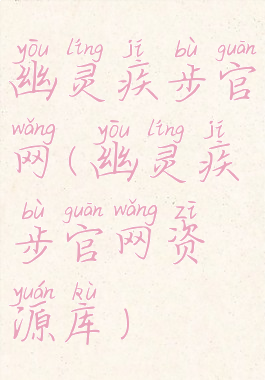 yōu líng jí bù guān
幽灵疾步官
wǎng yōu líng jí
网(幽灵疾
bù guān wǎng zī
步官网资
yuán kù
源库)